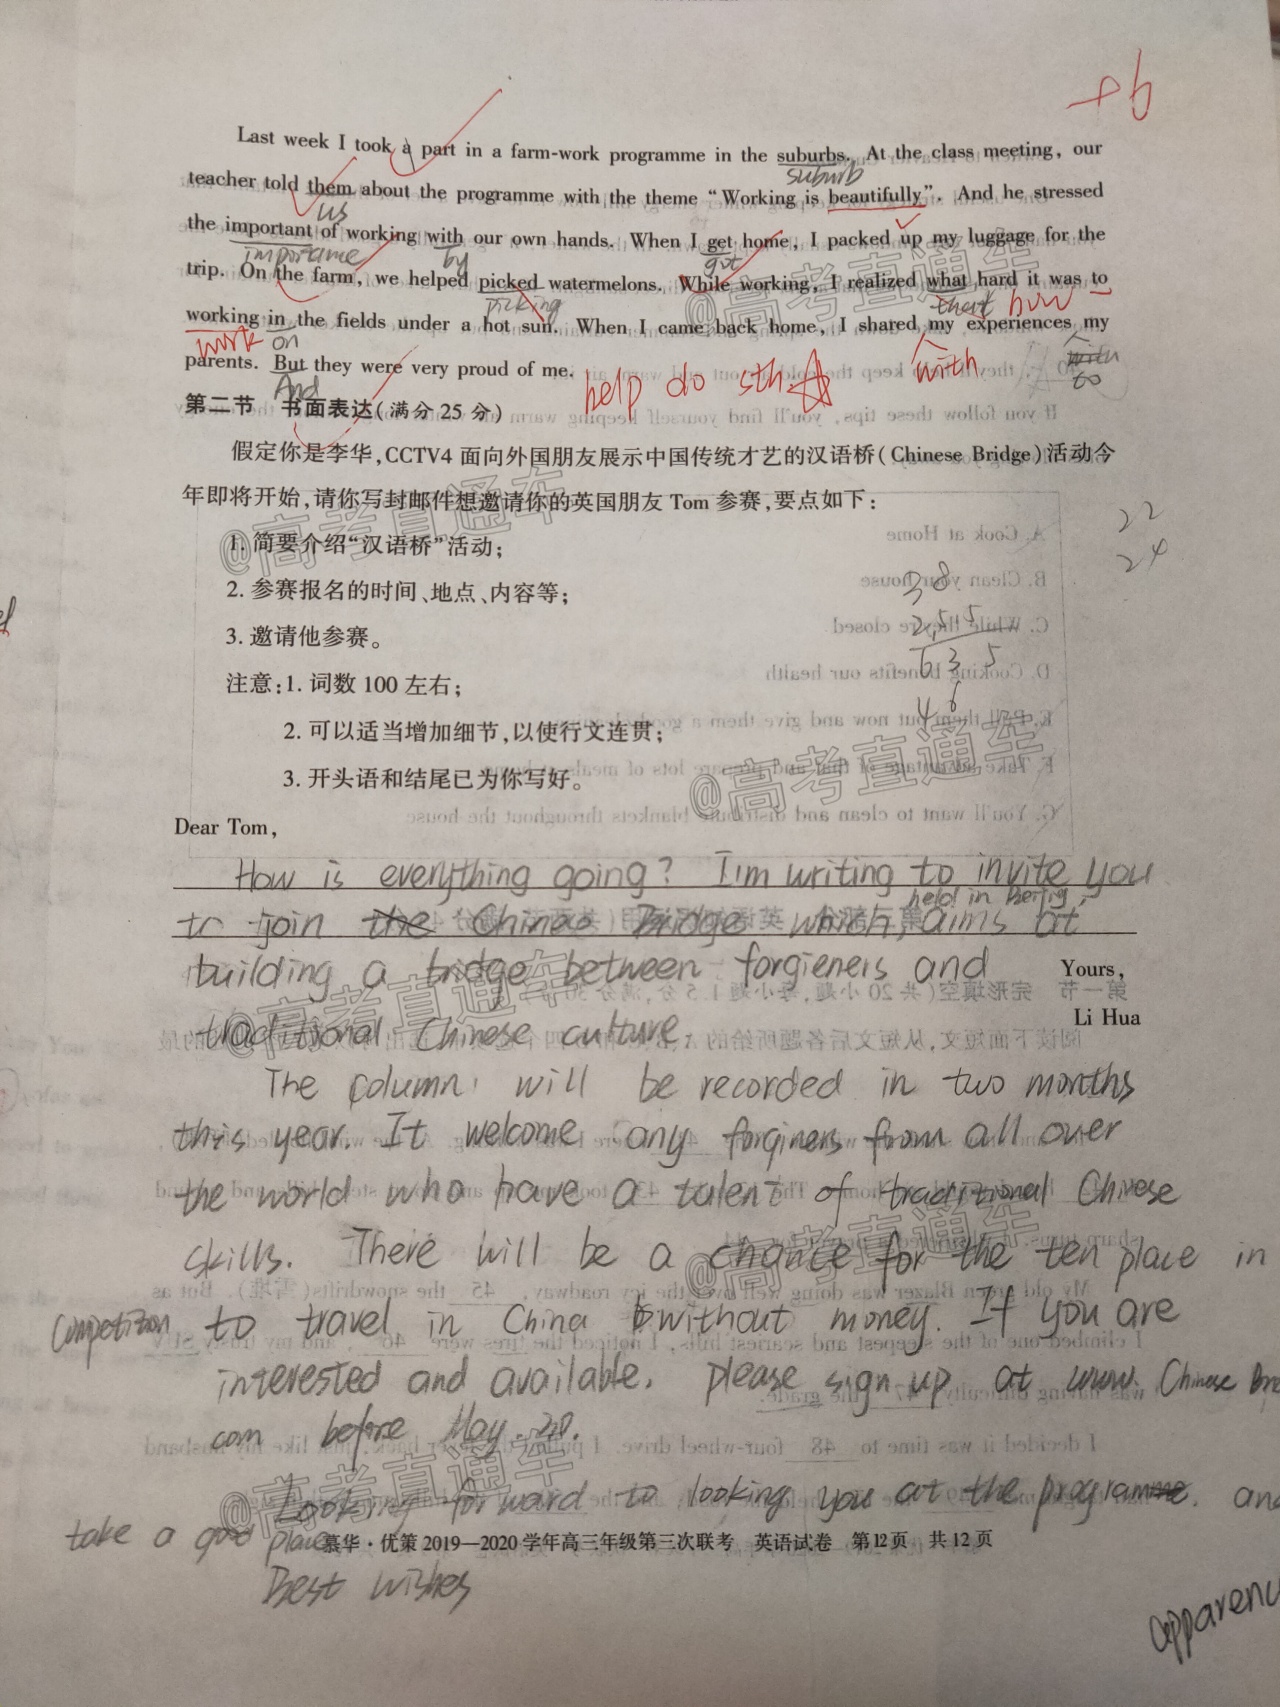 +6
Last week I took a part in a farm-work programme in the suburbs. At the class meeting, our
suburb
teacher told them about the programme with the theme “Working is beautifully”. And he stressed
us
the important of working with our own hands. When I get home, I packed up my luggage for the
importance by got
trip. On the farm, we helped picked watermelons. While working, I realized what hard it was to
picking that how
working in the fields under a hot sun. When I came back home, I shared my experiences my
work on with with
to
parents. But they were very proud of me.
And help do sth
第二节 书面表达(满分25分)
假定你是李华,CCTV4面向外国朋友展示中国传统才艺的汉语桥(Chinese Bridge)活动今
年即将开始,请你写封邮件想邀请你的英国朋友Tom参赛,要点如下:
22
24
1. 简要介绍“汉语桥”活动;
2. 参赛报名的时间、地点、内容等;
38
3. 邀请他参赛。
注意:1. 词数100左右;
63 5
46
2. 可以适当增加细节,以使行文连贯;
3. 开头语和结尾已为你写好。
Dear Tom,
How is everything going? I'm writing to invite you
held in Beijing
to join the Chinese Bridge which, aims at
building a bridge between forgieners and
Yours,
Li Hua
traditional Chinese culture.
The column will be recorded in two months
this year. It welcome any forginers from all over
the world who have a talent of traditional Chinese
skills. There will be a chance for the ten place in
competition to travel in China without money. If you are
interested and available, please sign up at www. Chinese
com before May. 20.
Looking forward to looking you at the programme, and
take a good place
慕华·优策2019—2020学年高三年级第三次联考 英语试卷 第12页 共12页
Best wishes
@高考直通车
@高考直通车
@高考直通车
@高考直通车
@高考直通车
@高考直通车